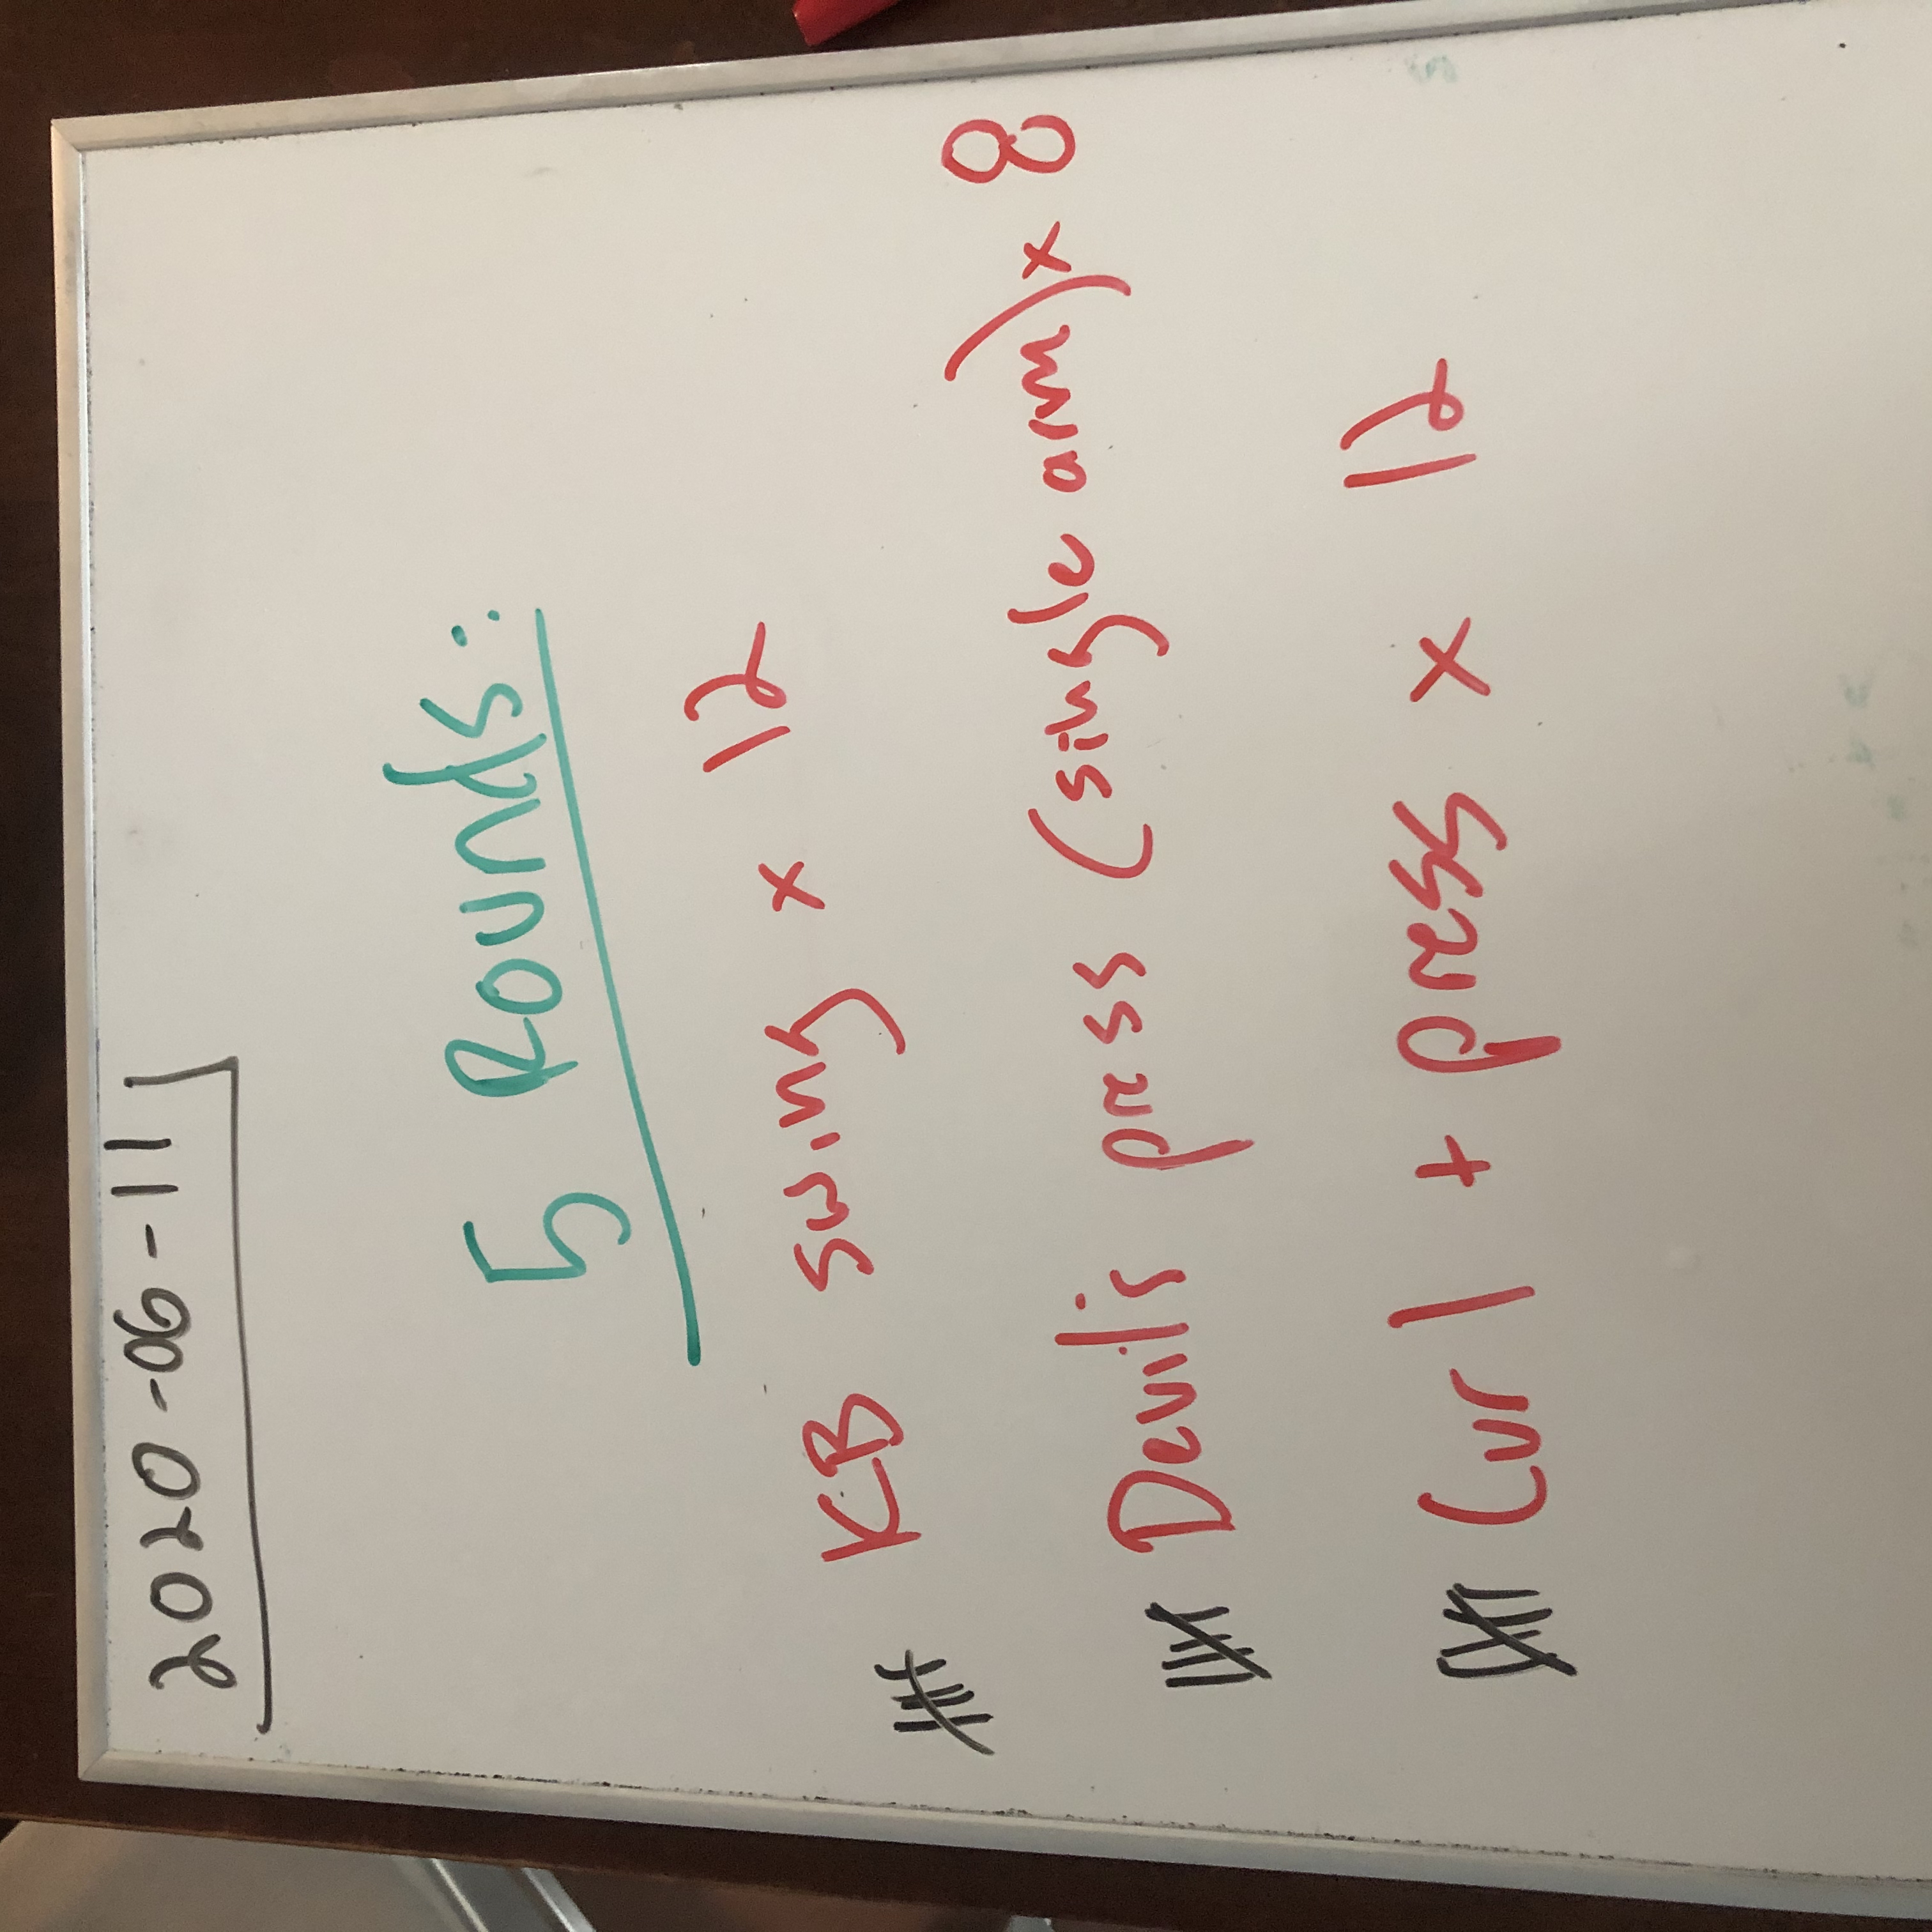 2020-06-11
5 Rounds:
KB swing x 12
Devil's press (single arm) x 8
Curl + press x 12